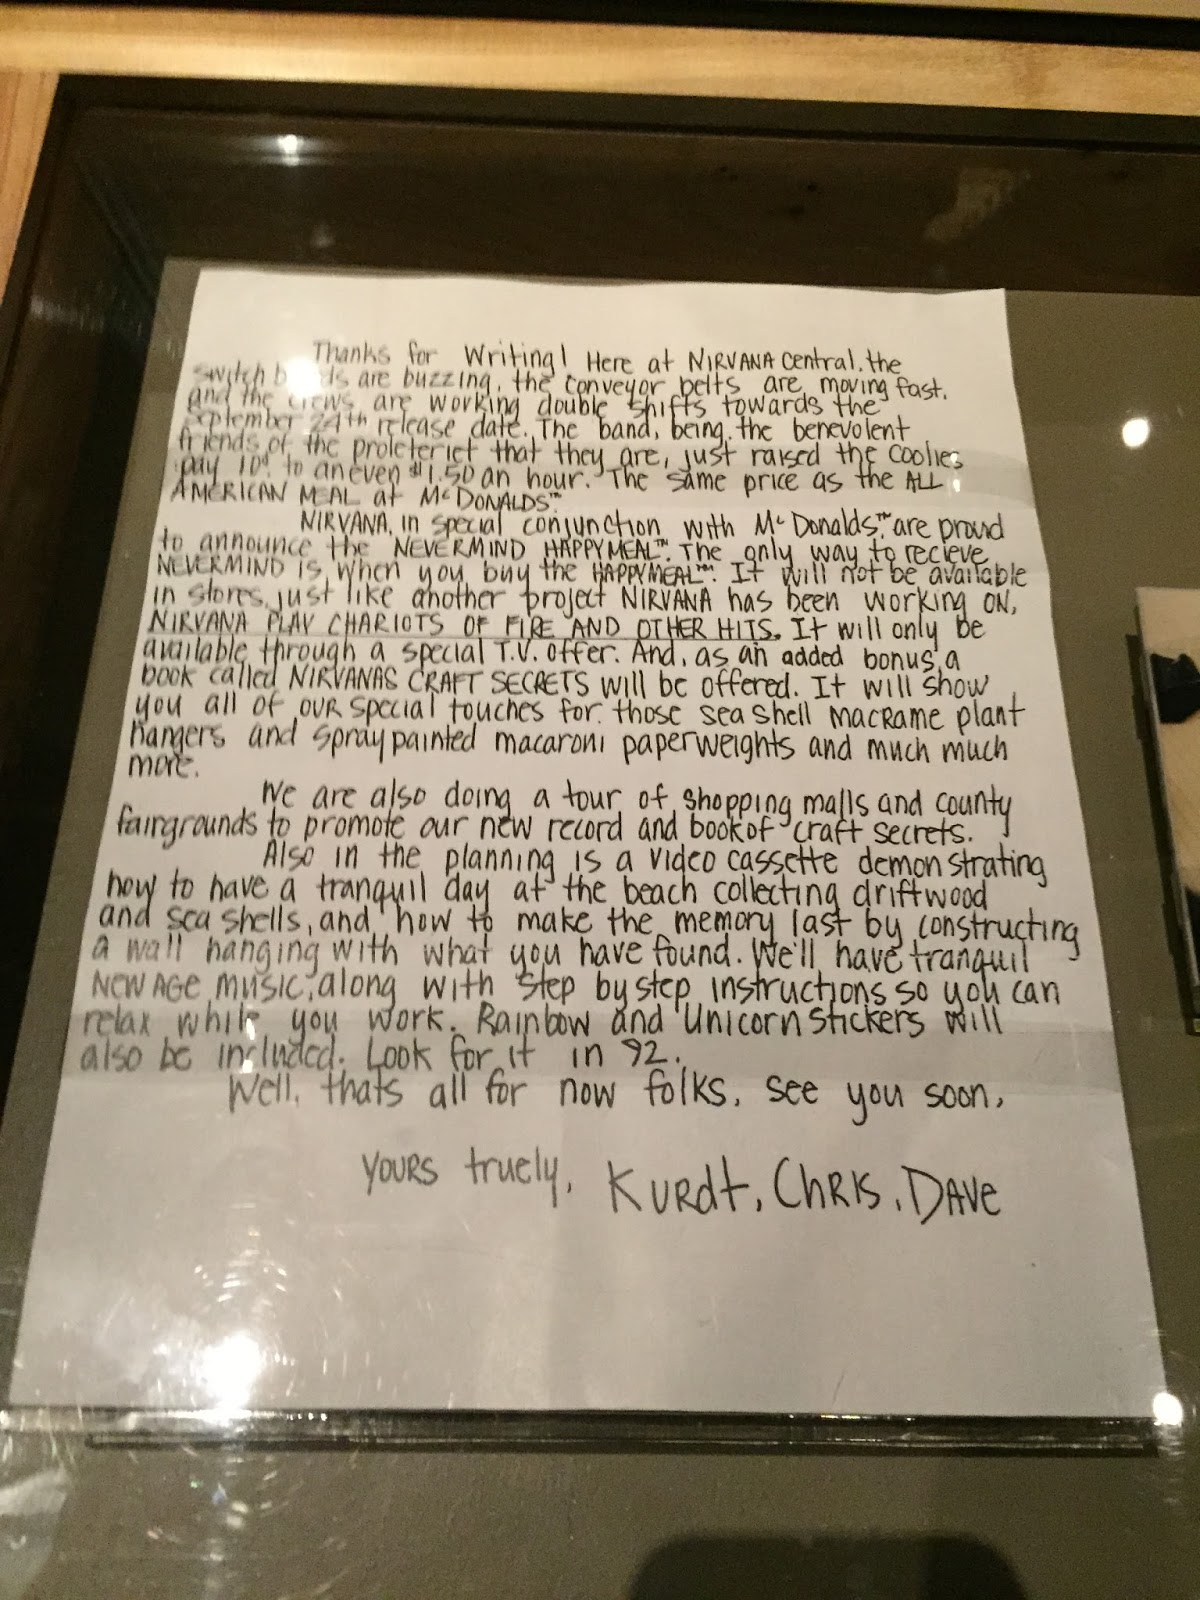 Thanks for Writing! Here at NIRVANA central, the
switch are buzzing, the conveyor belts are moving fast,
and the crews are working double shifts towards the
September 24th release date. The band, being, the benevolent
friends of the proleteriet that they are, just raised the coolies
pay 10¢ to an even $1.50 an hour. The same price as the ALL
AMERICAN MEAL at McDONALDS™.
NIRVANA, in special conjunction with McDonalds™, are proud
to announce the NEVERMIND HAPPYMEAL™. The only way to recieve
NEVERMIND is, when you buy the HAPPYMEAL™. It will not be available
in stores, just like another project NIRVANA has been working ON,
NIRVANA PLAY CHARIOTS OF FIRE AND OTHER HITS. It will only be
available through a special T.V. offer. And, as an added bonus, a
book called NIRVANAS CRAFT SECRETS will be offered. It will show
you all of our special touches for those sea shell macrame plant
hangers and spray painted macaroni paperweights and much much
more.
We are also doing a tour of shopping malls and county
fairgrounds to promote our new record and book of craft secrets.
Also in the planning is a video cassette demonstrating
how to have a tranquil day at the beach collecting driftwood
and sea shells, and how to make the memory last by constructing
a wall hanging with what you have found. We'll have tranquil
NEW AGE music, along with step by step instructions so you can
relax while you work. Rainbow and Unicorn stickers will
also be included. Look for it in 92.
Well, thats all for now folks, see you soon,
YOURS truely, Kurdt, Chris, Dave